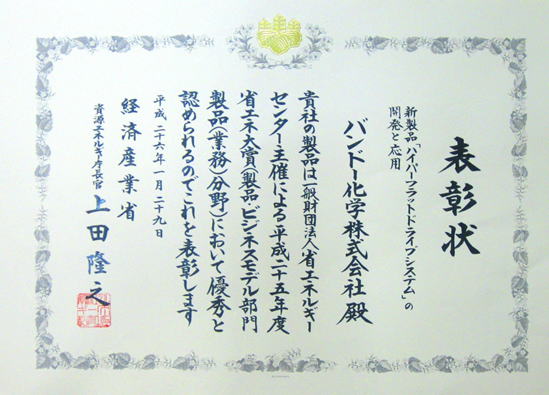 表彰状
新製品「ハイパーフラットドライブシステム」の
開発と応用
バンドー化学株式会社 殿
貴社の製品は一般財団法人省エネルギー
センター主催による平成二十五年度
省エネ大賞(製品・ビジネスモデル部門
製品(業務)分野)において優秀と
認められるのでこれを表彰します
平成二十六年一月二十九日
経済産業省
資源エネルギー庁長官 上田隆之